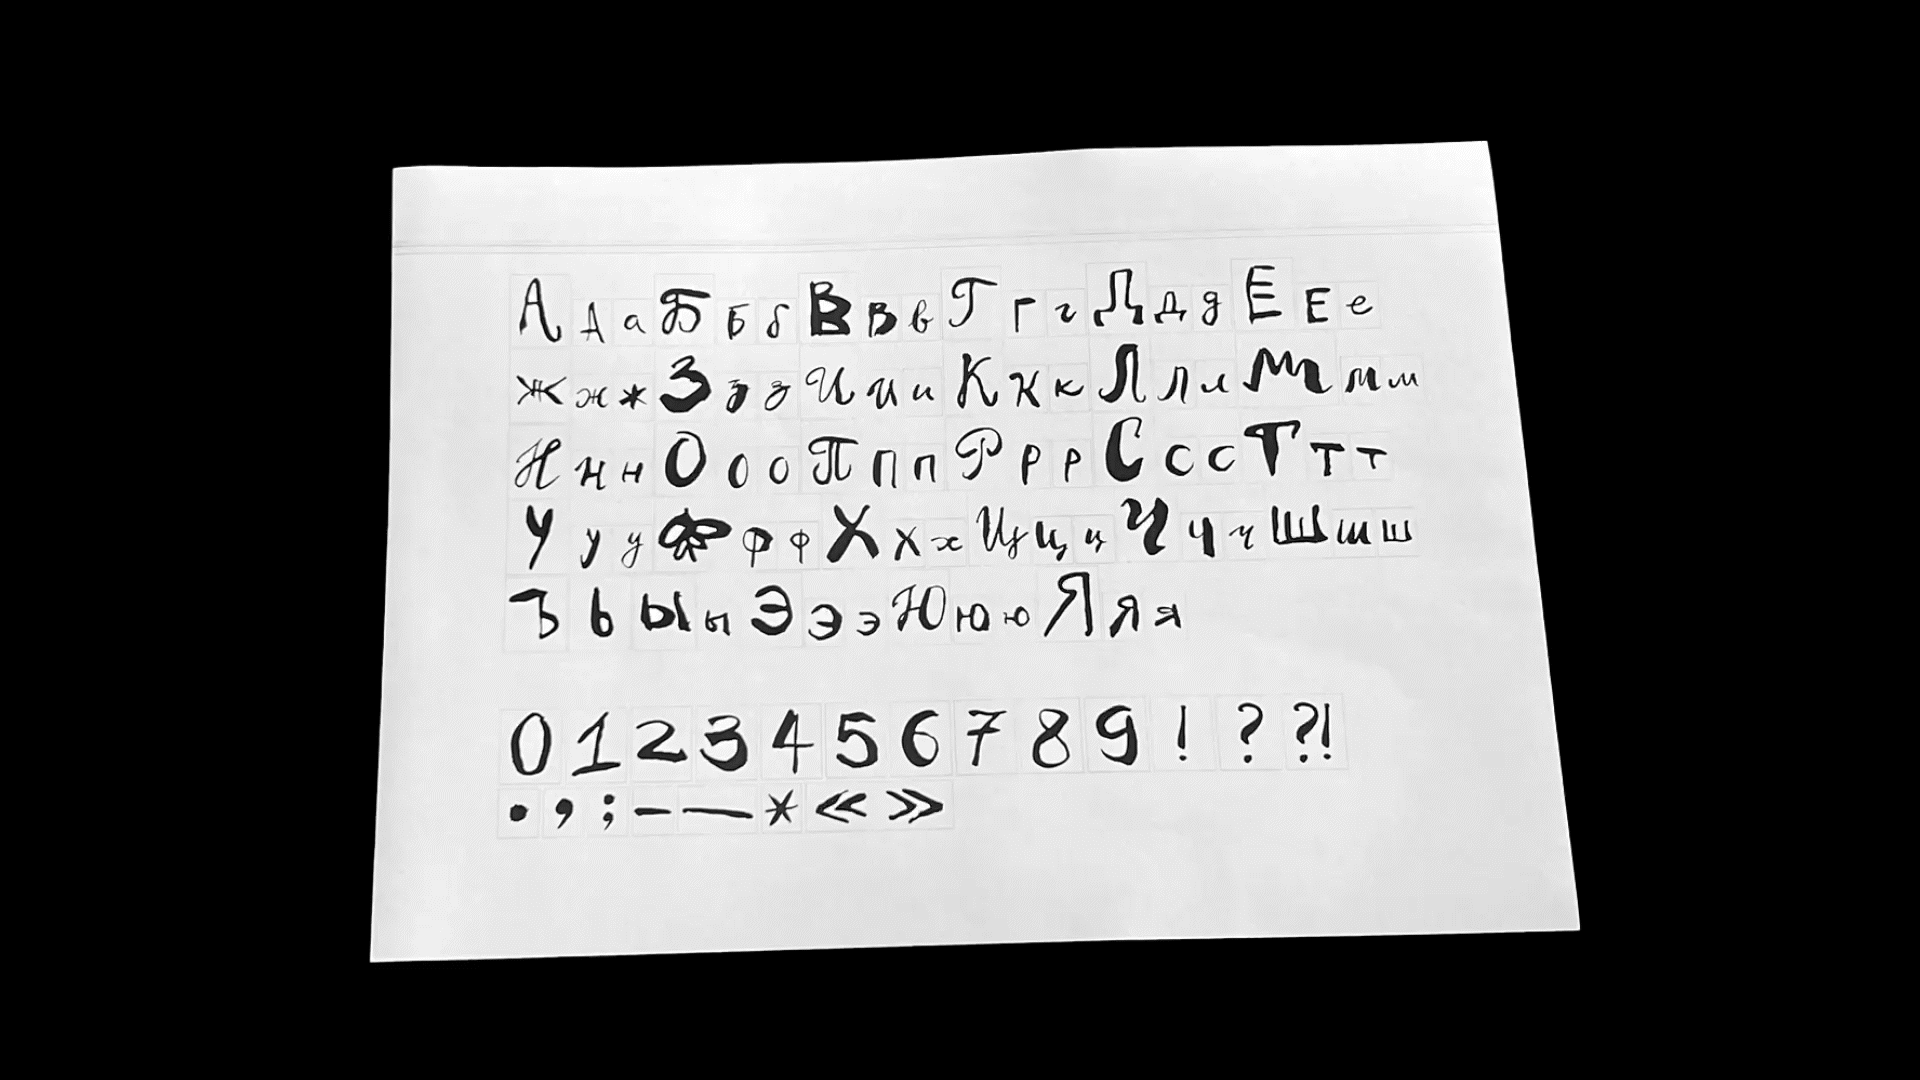 А А а Б Б б В В в Г Г г Д Д д Е Е е
Ж ж ж З З з И И и К К к Л Л л М М м
Н н н О о о П п п Р р р С с с Т т т
У у у Ф ф ф Х х х Ц ц ц Ч ч ч Ш ш ш
Ъ Ь Ы ы Э э э Ю ю ю Я я я
0 1 2 3 4 5 6 7 8 9 ! ? ?!
. , ; - — * « »